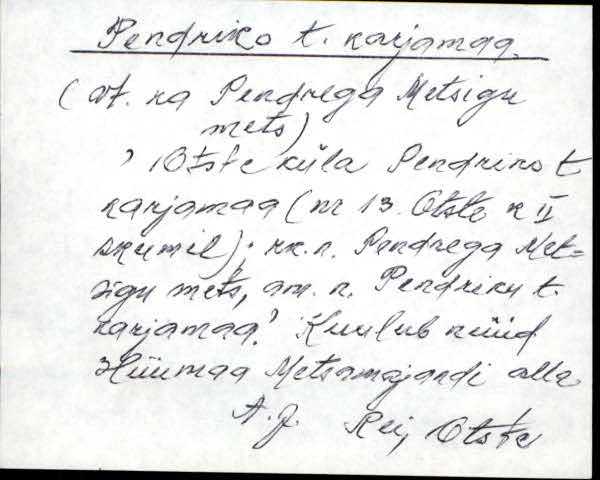 Pendriko t. karjamaa.
(vt. ka Pendrega Metsigu
mets)
, Otste küla Pendriko t
karjamaa (nr 13. Otste k II
skeemil); rk. n. Pendrega Met=
sigu mets, am. n. Pendriku t.
karjamaa.' Kuulub nüüd
Hiiumaa Metsamajandi alla
A. J. Rei, Otste